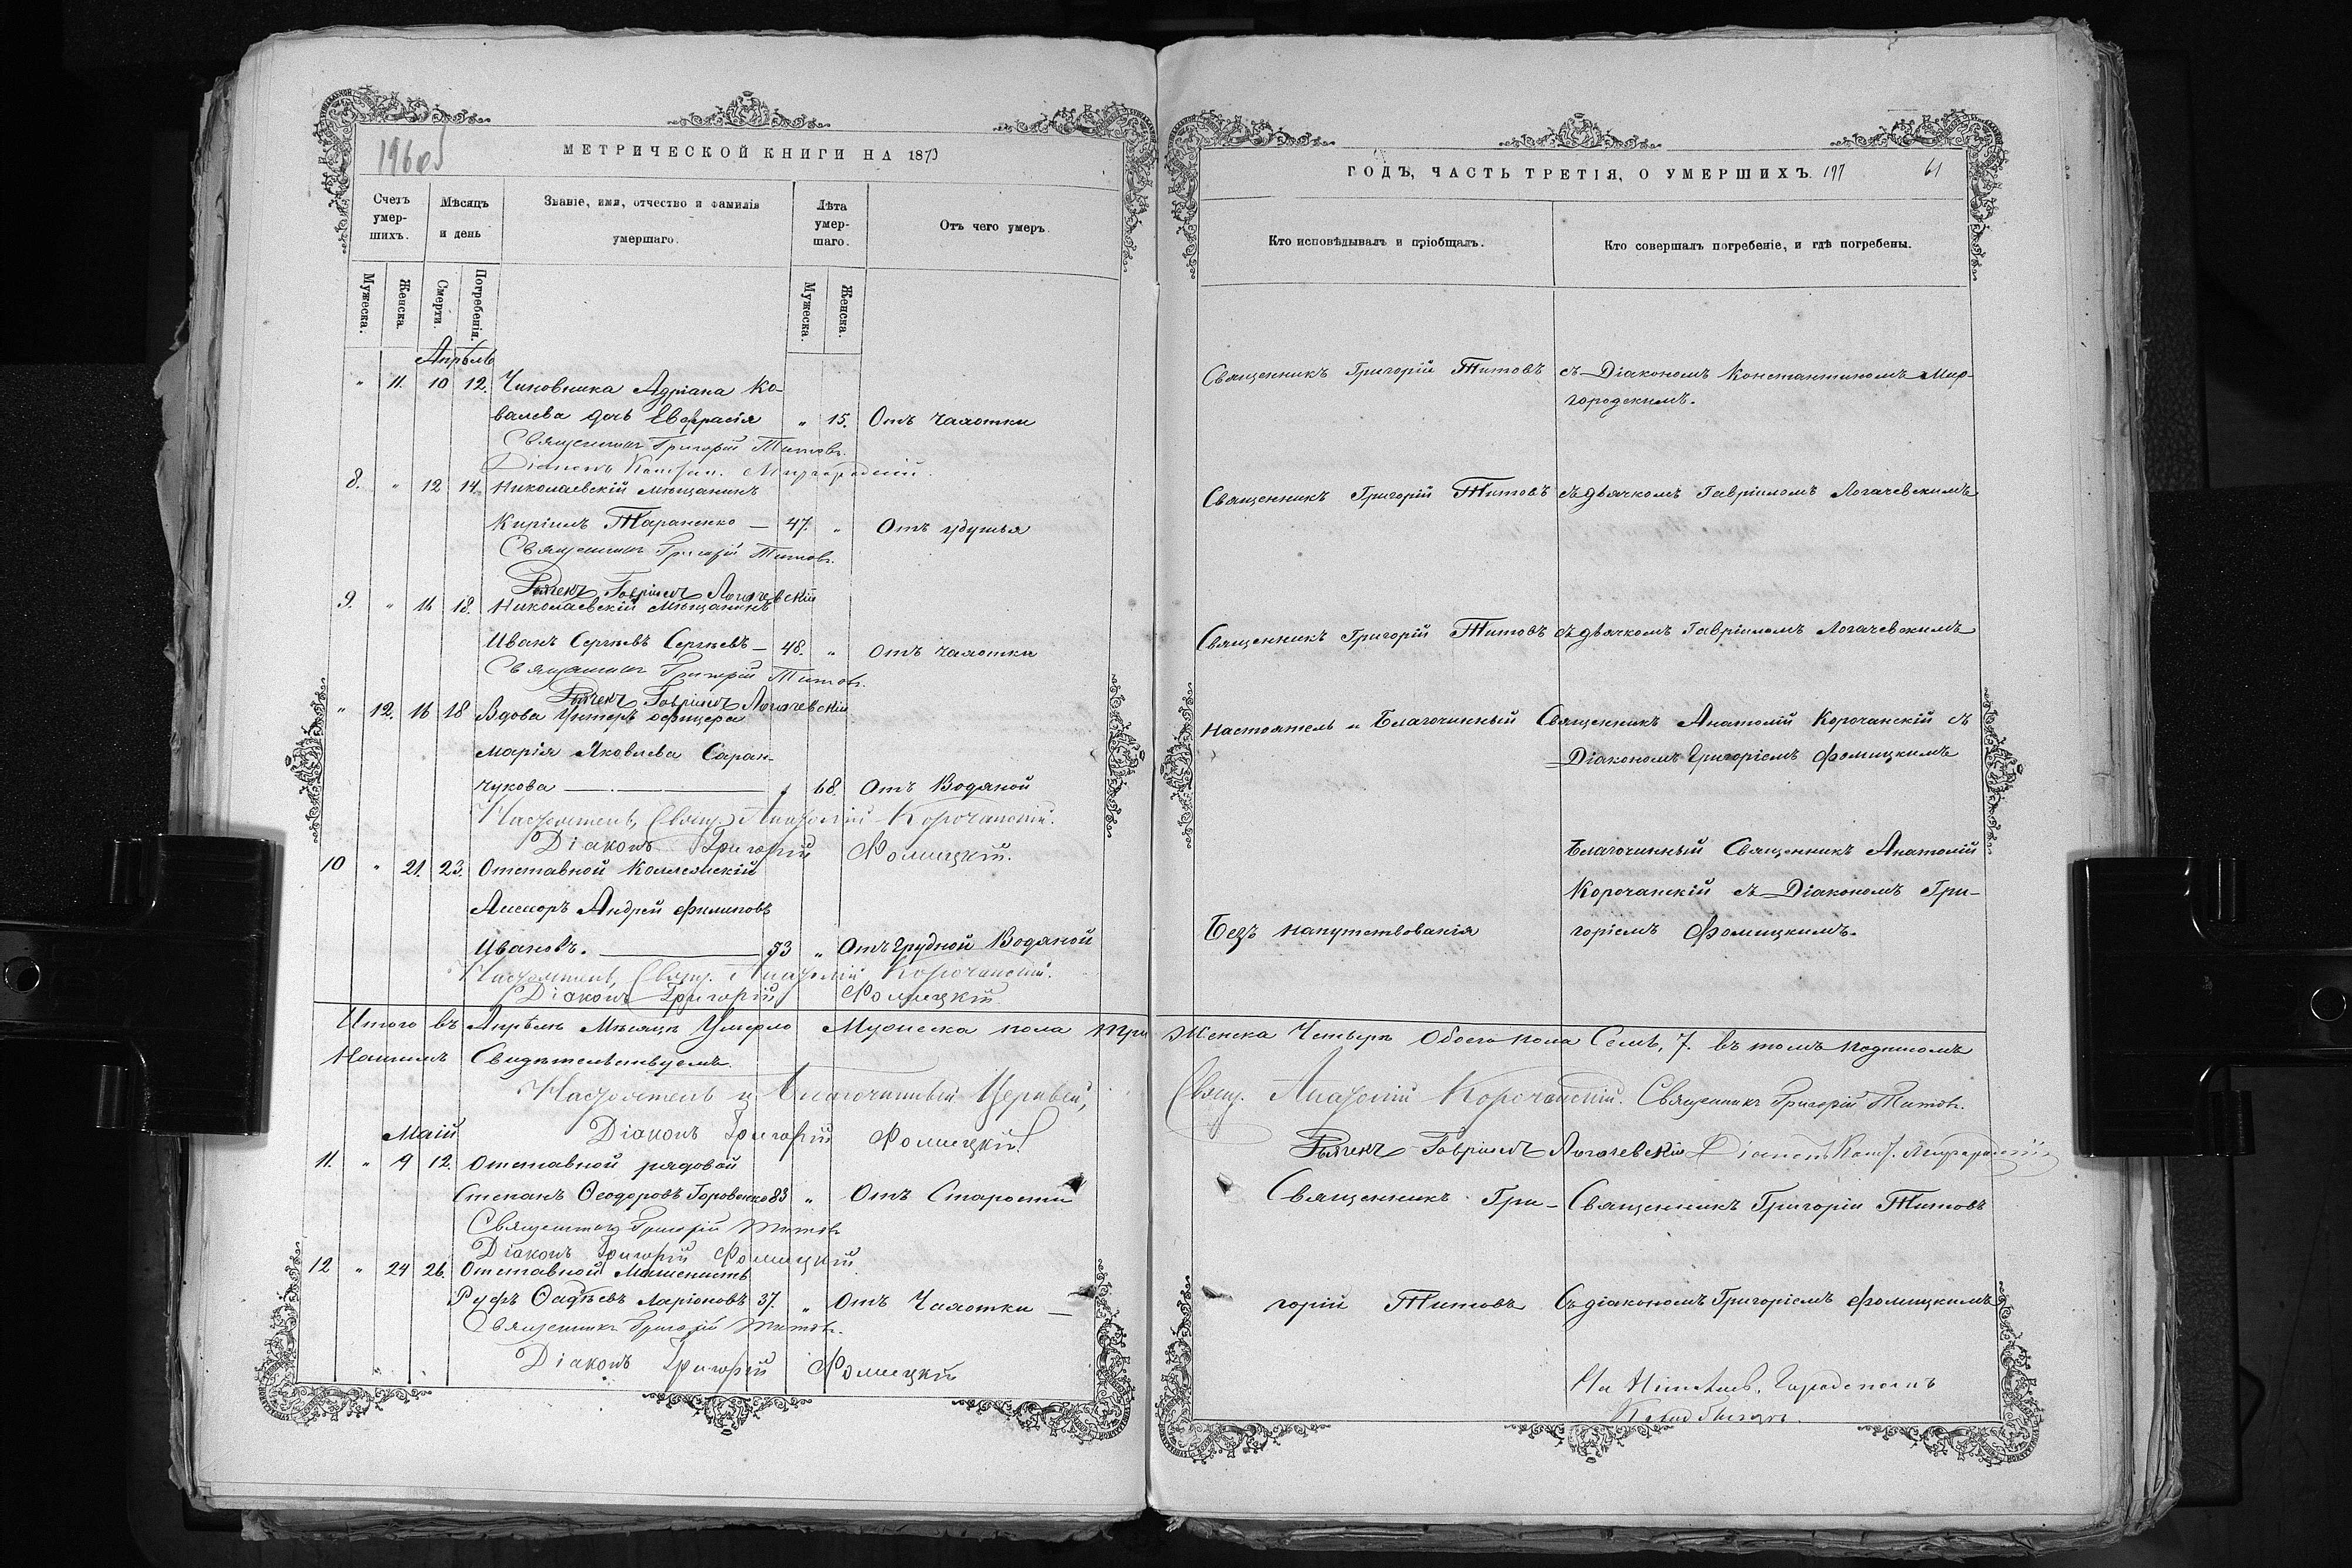 МЕТРИЧЕСКОЙ КНИГИ НА 1870
Счетъ умер-шихъ.
Мѣсяцъ и день
Званіе, имя, отчество и фамилія умершаго.
Лѣта умер-шаго.
Отъ чего умеръ.
Мужеска.
Женска.
Смерти.
Погребенія.
Мужеска.
Женска.
Апрѣль
" 11. 10 12. Чиновника Адріана Ко-
валева дочь Евфрасія " 15. Отъ чахотки
Священникъ Григорій Титовъ.
Діаконъ Конст. Миргородскій.
8. " 12 14. Николаевскій мѣщанинъ
Кирилъ Тараненко — 47. " Отъ удушья
Священникъ Григорій Титовъ.
Дьячекъ Гавріилъ Логачевскій
9. " 16 18. Николаевскій мѣщанинъ
Иванъ Сергѣевъ Сергѣевъ — 48. " Отъ чахотки
Священникъ Григорій Титовъ.
Дьячекъ Гавріилъ Логачевскій
" 12. 16 18 Вдова Унтеръ офицера
Марія Яковлева Саран-
чукова — " 68. Отъ Водяной
Настоятель, Свящ. Анатолій Корочанскій.
Діаконъ Григорій Фомицкій.
10 " 21. 23. Отставной Коллежскій
Ассесоръ Андрей Филиповъ
Ивановъ. — 53 " Отъ грудной Водяной
Настоятель, Свящ. Анатолій Корочанскій.
Діаконъ Григорій Фомицкій.
Итого въ Апрѣлѣ Мѣсяцѣ Умерло Мужеска пола три
Нашимъ Свидѣтельствуемъ.
Настоятель и Благочинный Церквей,
Діаконъ Григорій Фомицкій.
Маій
11. " 9 12. Отставной рядовой
Степанъ Ѳеодоровъ Горовенко 83 " Отъ Старости
Священникъ Григорій Титовъ
Діаконъ Григорій Фомицкій
12 " 24 26. Отставной
Руфъ Ѳадѣевъ Ларіоновъ 37. " Отъ Чахотки —
Священникъ Григорій Титовъ.
Діаконъ Григорій Фомицкій
ГОДЪ, ЧАСТЬ ТРЕТІЯ, О УМЕРШИХЪ. 197 61
Кто исповѣдывалъ и пріобщалъ.
Кто совершалъ погребеніе, и гдѣ погребены.
Священникъ Григорій Титовъ съ Діакономъ Константиномъ Мир-
городскимъ.
Священникъ Григорій Титовъ съ дьячкомъ Гавріиломъ Логачевскимъ
Священникъ Григорій Титовъ съ дьячкомъ Гавріиломъ Логачевскимъ
Настоятель и Благочинный Священникъ Анатолій Корочанскій съ
Діакономъ Григоріемъ Фомицкимъ
Благочинный Священникъ Анатолій
Корочанскій съ Діакономъ Гри-
Безъ напутствованія горіемъ Фомицкимъ.
Женска Четыре Обоего пола Семь, 7. въ томъ подписомъ
Свящ. Анатолій Корочанскій. Священникъ Григорій Титовъ.
Дьячекъ Гавріилъ Логачевскій Діаконъ Конст. Миргородскій
Священникъ Гри- Священникъ Григорій Титовъ
горій Титовъ Съ діакономъ Григоріемъ Фомицкимъ
На Николаев. Городскомъ
Кладбищѣ.